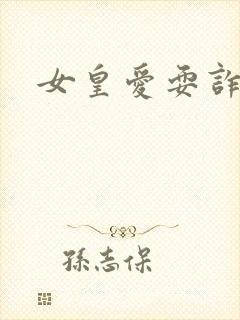 女皇愛耍詐
孫志保